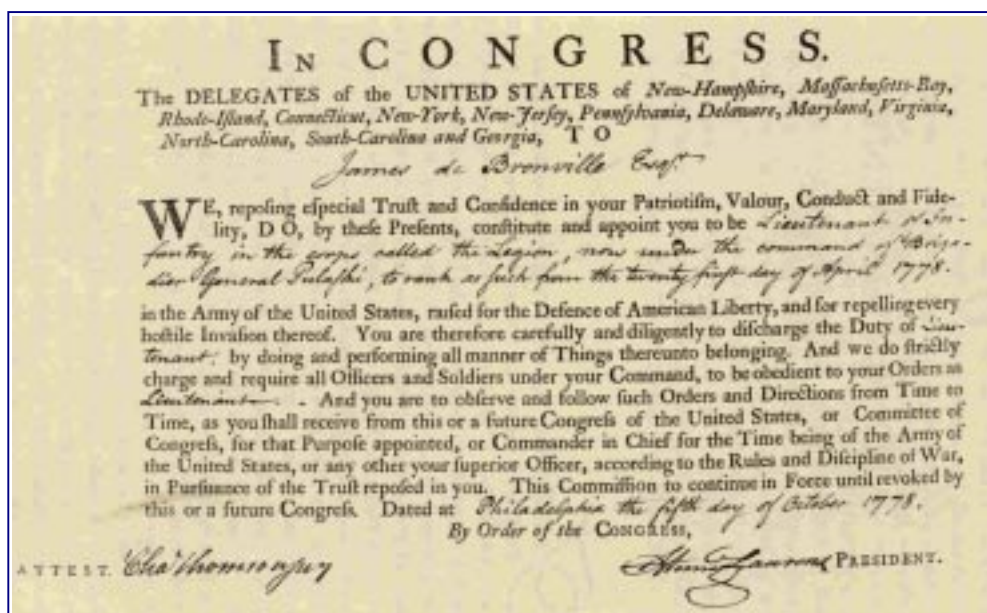 IN CONGRESS.
The DELEGATES of the UNITED STATES of New-Hampſhire, Maſſachuſetts-Bay,
Rhode-Iſland, Connecticut, New-York, New-Jerſey, Pennſylvania, Delaware, Maryland, Virginia,
North-Carolina, South-Carolina and Georgia, TO
James de Bronville Esqr.
WE, repoſing eſpecial Truſt and Confidence in your Patriotiſm, Valour, Conduct and Fide-
lity, DO, by theſe Preſents, conſtitute and appoint you to be Lieutenant of In-
fantry in the corps called the Legion, now under the command of Briga-
dier General Pulaſki, to rank as ſuch from the twenty firſt day of April 1778.
in the Army of the United States, raiſed for the Defence of American Liberty, and for repelling every
hoſtile Invaſion thereof. You are therefore carefully and diligently to diſcharge the Duty of Lieu-
tenant. by doing and performing all manner of Things thereunto belonging. And we do ſtrictly
charge and require all Officers and Soldiers under your Command, to be obedient to your Orders as
Lieutenant. And you are to obſerve and follow ſuch Orders and Directions from Time to
Time, as you ſhall receive from this or a future Congreſs of the United States, or Committee of
Congreſs, for that Purpoſe appointed, or Commander in Chief for the Time being of the Army of
the United States, or any other your ſuperior Officer, according to the Rules and Diſcipline of War,
in Purſuance of the Truſt repoſed in you. This Commiſſion to continue in Force until revoked by
this or a future Congreſs. Dated at Philadelphia the fifth day of October 1778.
By Order of the CONGRESS,
ATTEST. Cha Thomson ſecy
Henry Laurens PRESIDENT.